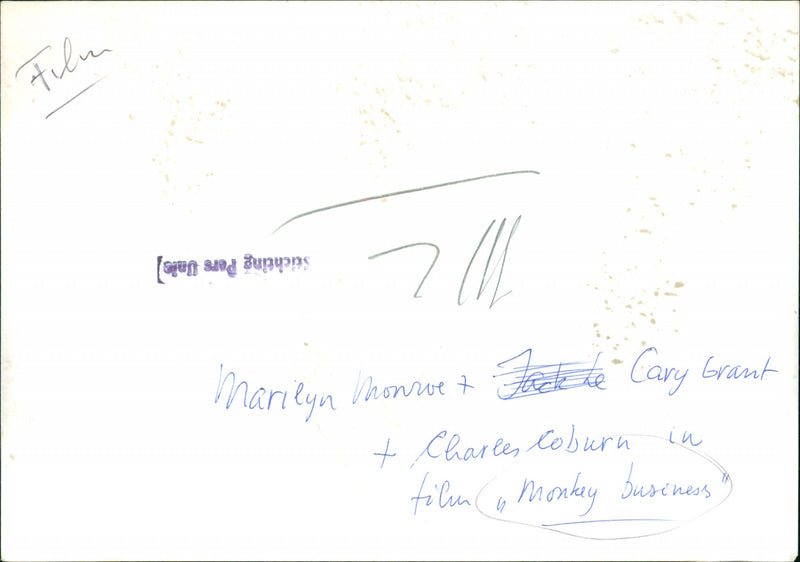 Film
Stichting Pers Unie]
Marilyn Monroe + Cary Grant
+ Charles Coburn in
film „Monkey business"